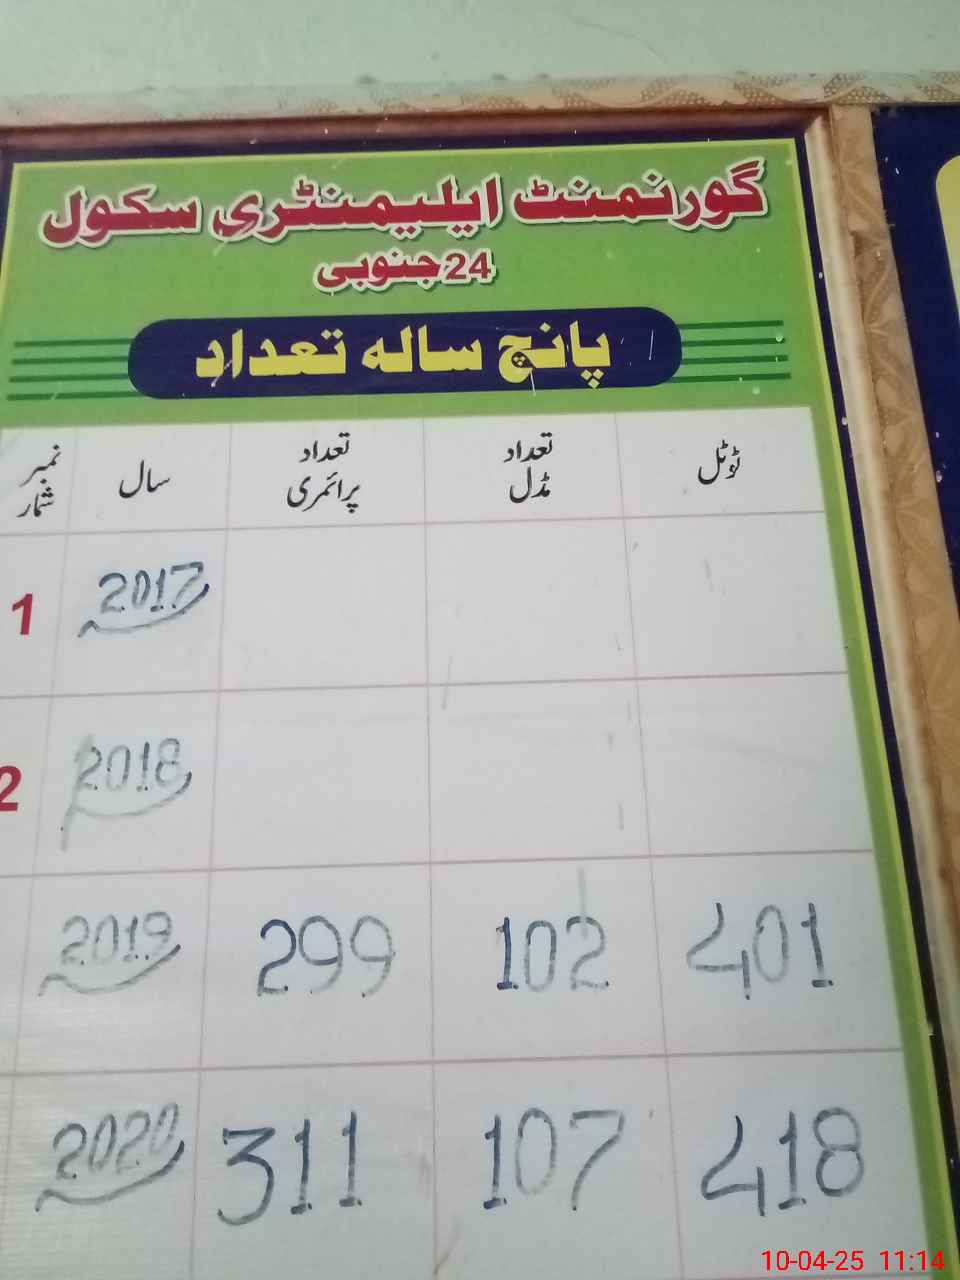 گورنمنٹ ایلیمنٹری سکول
24 جنوبی
پانچ سالہ تعداد
نمبر شمار سال تعداد پرائمری تعداد مڈل ٹوٹل
1 2017
2 2018
2019 299 102 401
2020 311 107 418
10-04-25 11:14